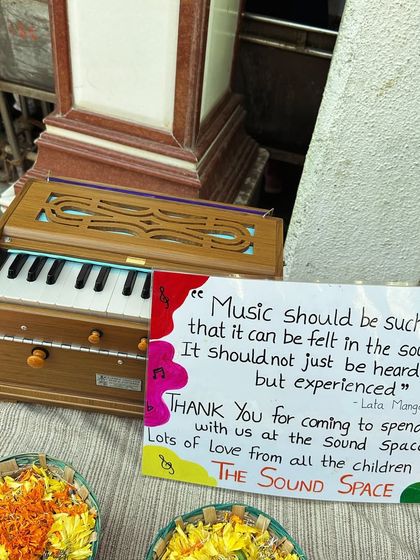 "Music should be such
that it can be felt in the
It should not just be heard
but experienced"
- Lata
THANK YOU for coming to spend
with us at the Sound
Lots of Love from all the children
THE SOUND SPACE